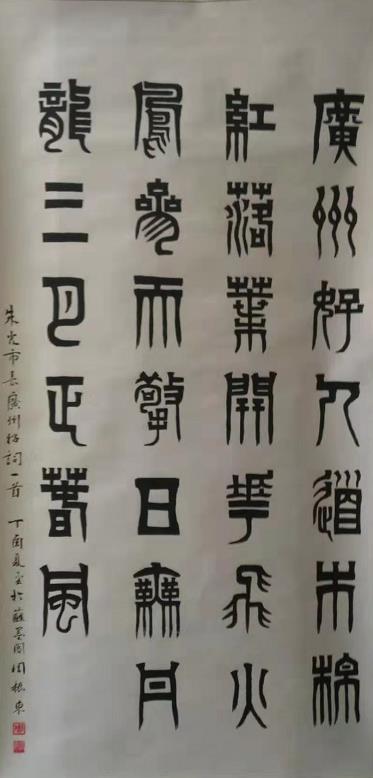 廣州好人道木棉
紅落葉開花飛火
鳳參天擎日舞丹
龍三月正春風
朱光市長廣州好詞一首 丁酉夏至於蘇墨閣周振東